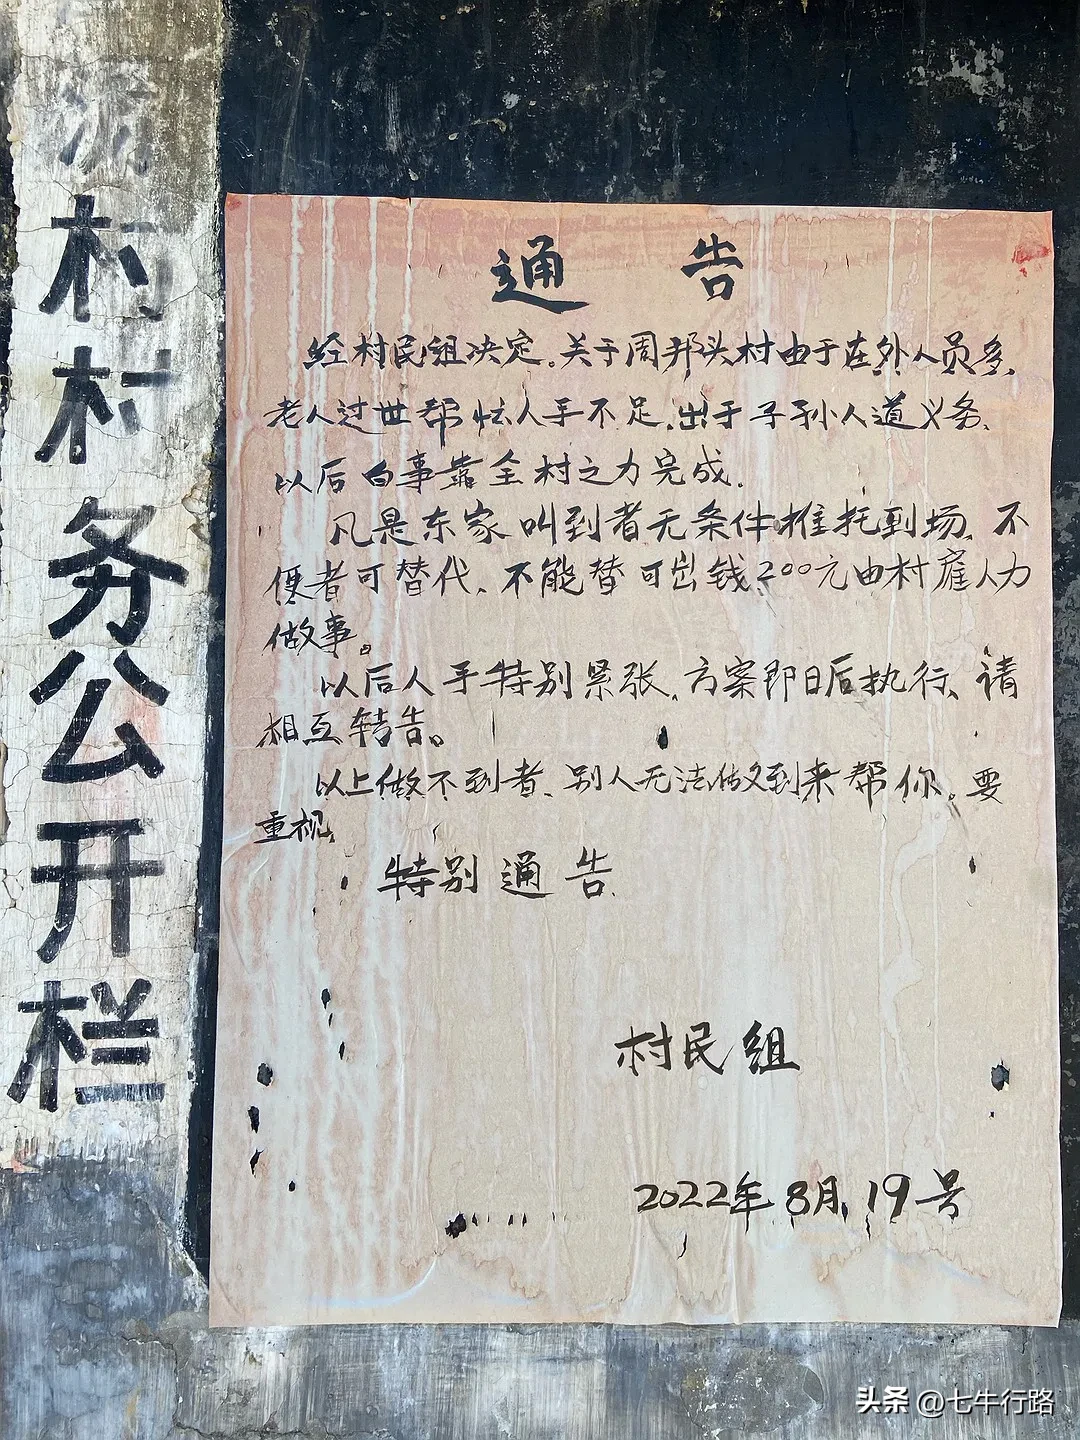 流村村务公开栏
通告
经村民组决定。关于周邦头村由于在外人员多、
老人过世帮忙人手不足,出于子孙人道义务、
以后白事靠全村之力完成.
凡是东家叫到者无条件推托到场,不
便者可替代、不能替可出钱200元由村雇人力
做事。
以后人手特别紧张,方案即日后执行、请
相互转告。
以上做不到者、别人无法做到来帮你。要
重视,
特别通告.
村民组
2022年8月19号
头条 @七牛行路